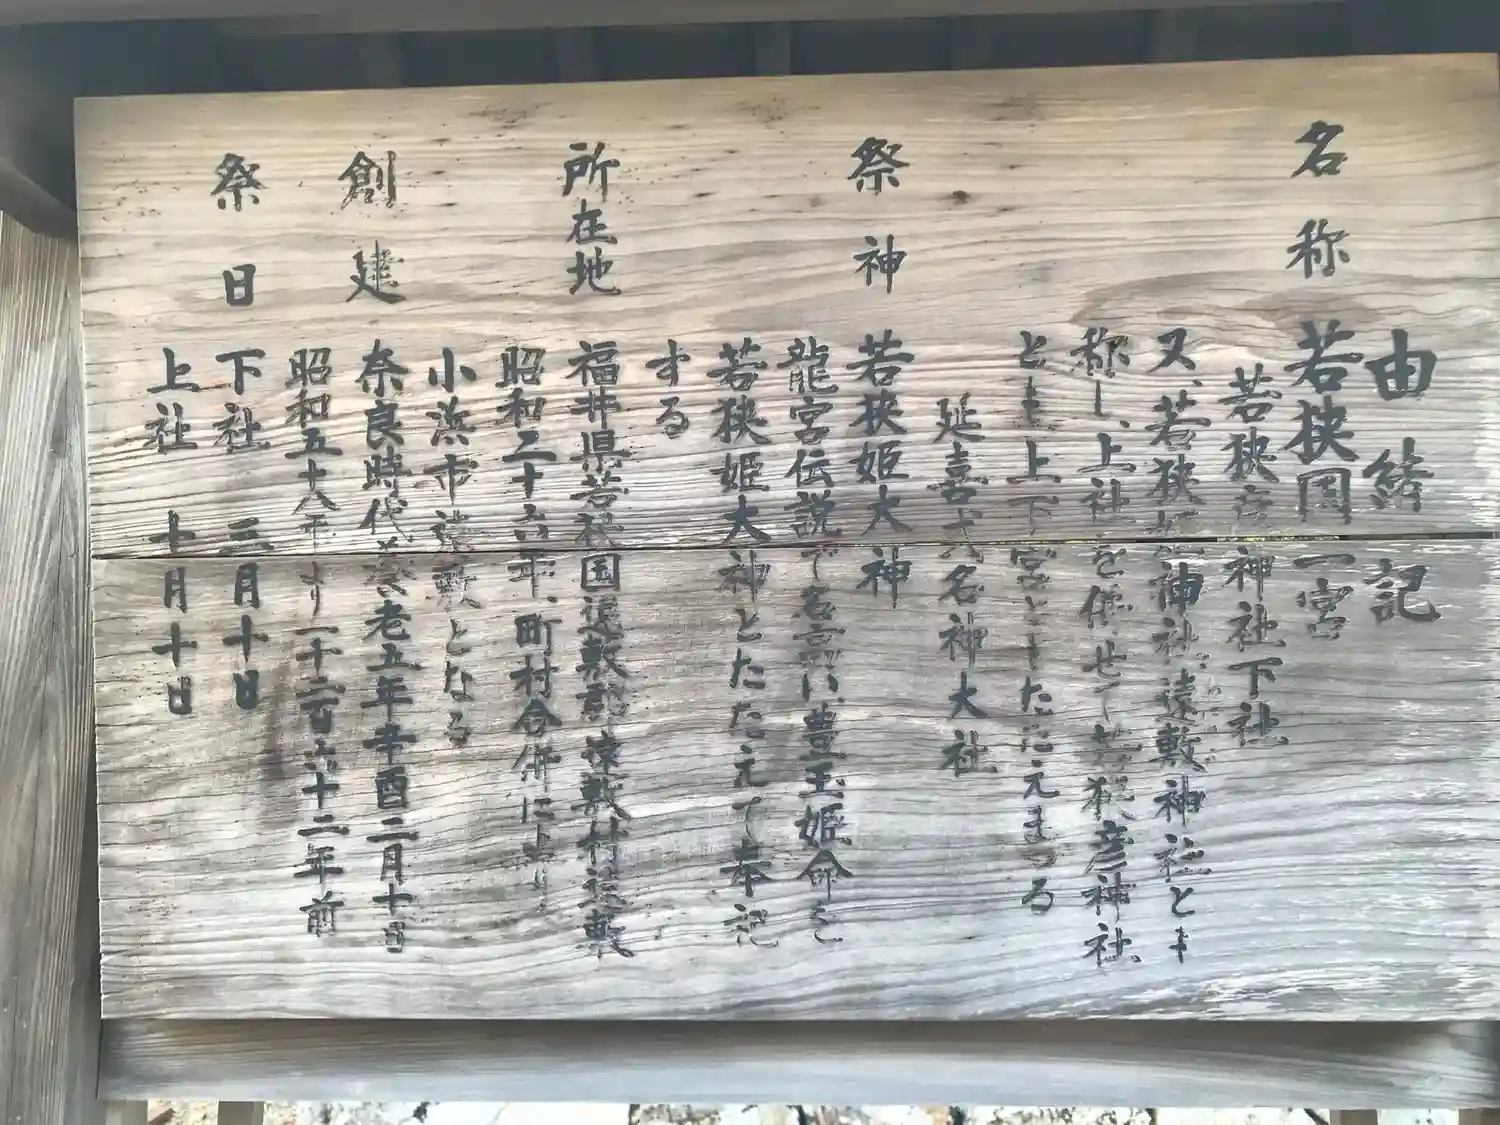 由緒記
名称 若狭国一宮
若狭彦神社下社
又、若狭姫神社遠敷神社とも
称し、上社を併せて若狭彦神社
とも上下宮ともたたえまつる
延喜式名神大社
祭神 若狭姫大神
龍宮伝説で名高い、豊玉姫命を
若狭姫大神とたたえて奉祀
する
所在地 福井県若狭国遠敷郡遠敷村遠敷
昭和二十六年、町村合併により
小浜市遠敷となる
創建 奈良時代 養老五年辛酉二月十日
昭和五十八年より一千二百六十二年前
祭日 下社 三月十日
上社 十月十日